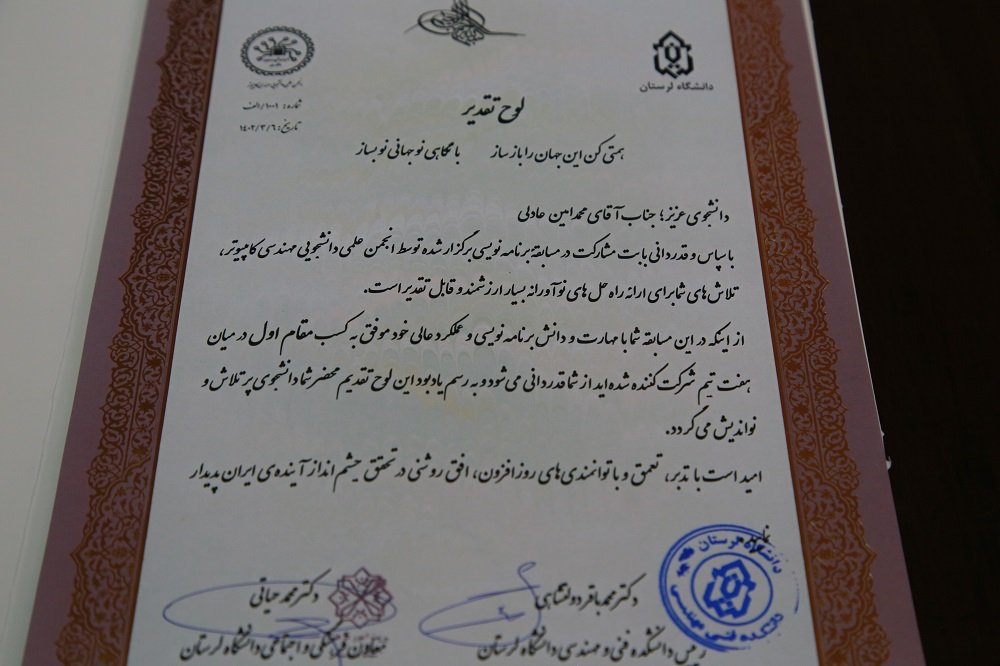 دانشگاه لرستان
شماره: ۱۰۰۱/الف
تاریخ: ۱۴۰۲/۳/۶
لوح تقدیر
همتی کن این جهان را باز ساز با نگاهی نو جهانی نو بساز
دانشجوی عزیز؛ جناب آقای محمدامین عادلی
با سپاس و قدردانی بابت مشارکت در مسابقهٔ برنامه نویسی برگزار شده توسط انجمن علمی دانشجویی مهندسی کامپیوتر،
تلاش های شما برای ارائه راه حل های نوآورانه بسیار ارزشمند و قابل تقدیر است.
از اینکه در این مسابقه شما با مهارت و دانش برنامه نویسی و عملکرد عالی خود موفق به کسب مقام اول در میان
هفت تیم شرکت کننده شده اید از شما قدردانی می شود و به رسم یادبود این لوح تقدیم محضر شما دانشجوی پر تلاش و
نواندیش می گردد.
امید است با تدبر، تعمق و با توانمندی های روزافزون، افق روشنی در تحقق چشم انداز آینده ی ایران پدیدار
دانشگاه لرستان
دانشکده فنی مهندسی
دکتر محمدباقر دولتشاهی
رئیس دانشکده فنی و مهندسی دانشگاه لرستان
دکتر محمد حیاتی
معاون فرهنگی و اجتماعی دانشگاه لرستان